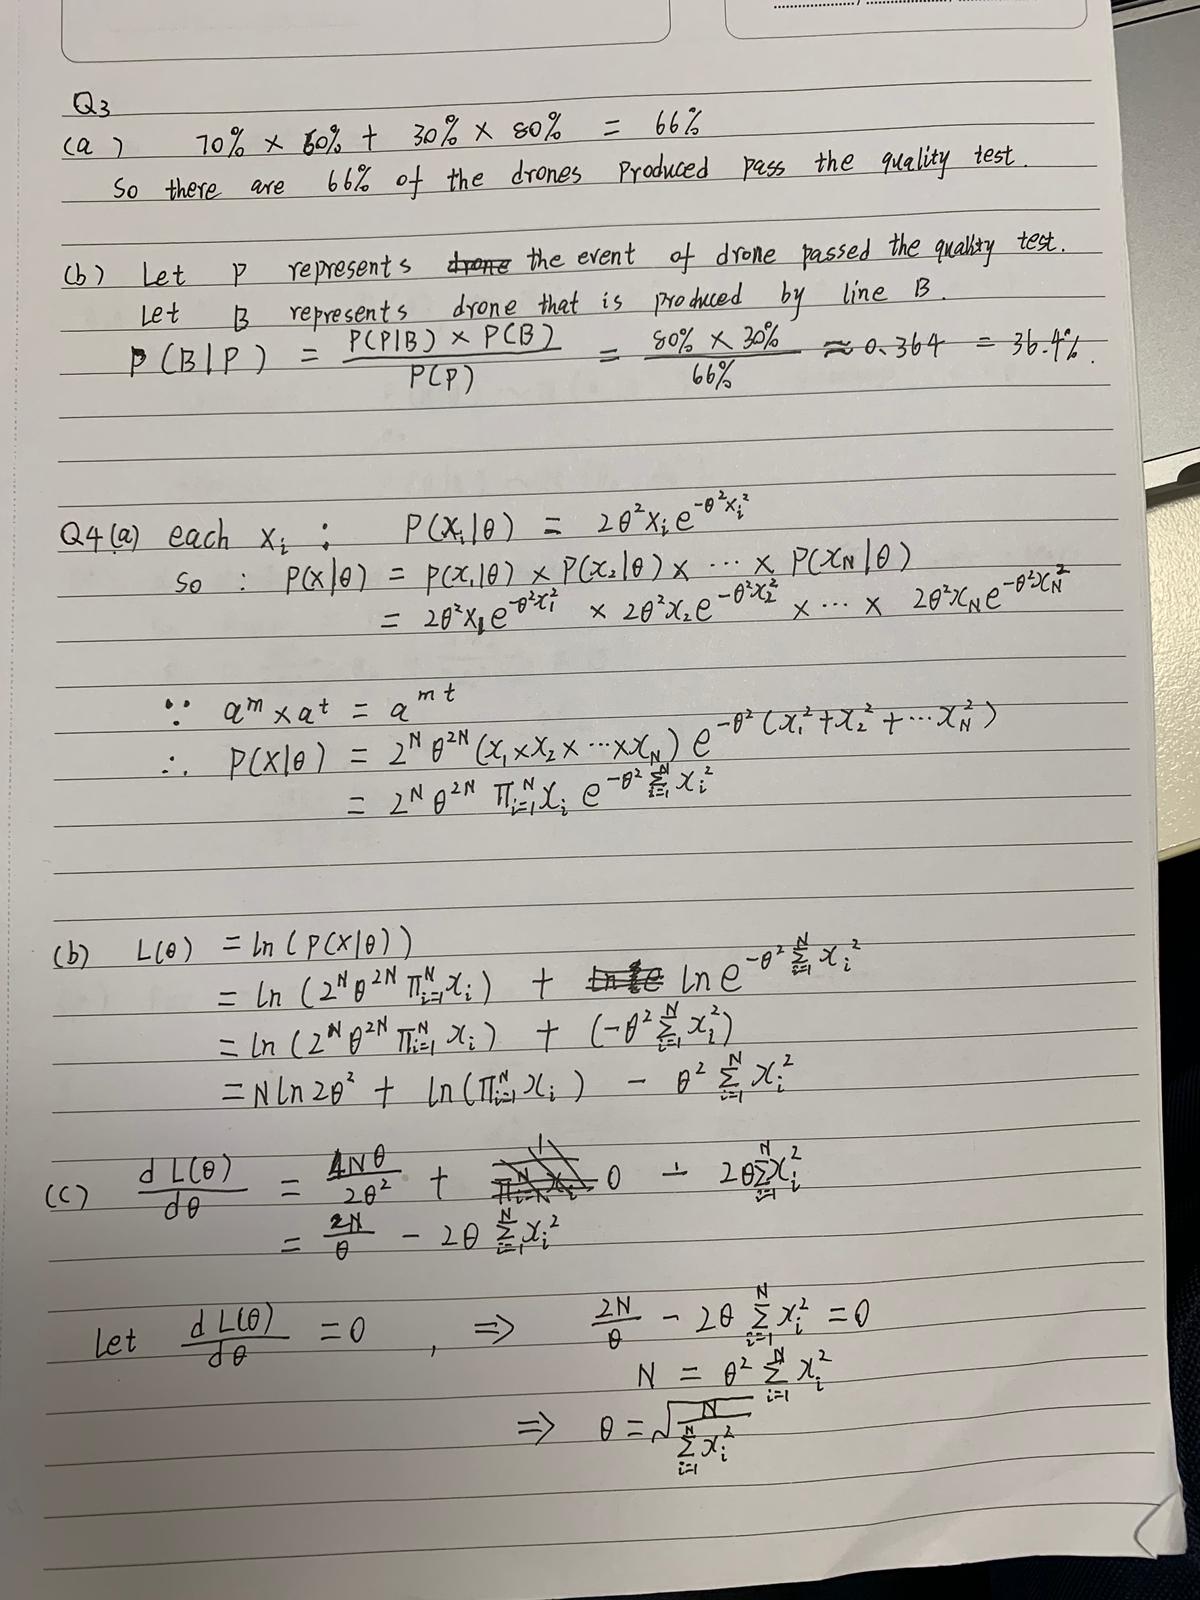 Q3
(a) 70% × 60% + 30% × 80% = 66%
So there are 66% of the drones produced pass the quality test.
(b) Let P represents the event of drone passed the quality test.
Let B represents drone that is produced by line B.
P(B|P) = P(P|B) × P(B) / P(P) = 80% × 30% / 66% ≈ 0.364 = 36.4%.
Q4(a) each xᵢ : P(xᵢ|θ) = 2θ²xᵢe^(-θ²xᵢ²)
So : P(X|θ) = P(x₁|θ) × P(x₂|θ) × ⋯ × P(x_N|θ)
= 2θ²x₁e^(-θ²x₁²) × 2θ²x₂e^(-θ²x₂²) × ⋯ × 2θ²x_Ne^(-θ²x_N²)
∵ a^m × a^t = a^(m t)
∴ P(X|θ) = 2^N θ^(2N) (x₁ × x₂ × ⋯ × x_N) e^(-θ²(x₁² + x₂² + ⋯ x_N²))
= 2^N θ^(2N) ∏_(i=1)^N xᵢ e^(-θ² Σ_(i=1)^N xᵢ²)
(b) L(θ) = ln(P(X|θ))
= ln(2^N θ^(2N) ∏_(i=1)^N xᵢ) + ln e^(-θ² Σ_(i=1)^N xᵢ²)
= ln(2^N θ^(2N) ∏_(i=1)^N xᵢ) + (-θ² Σ_(i=1)^N xᵢ²)
= N ln 2θ² + ln(∏_(i=1)^N xᵢ) - θ² Σ_(i=1)^N xᵢ²
(c) dL(θ)/dθ = 4Nθ/2θ² + 0 - 2θ Σ_(i=1)^N xᵢ²
= 2N/θ - 2θ Σ_(i=1)^N xᵢ²
Let dL(θ)/dθ = 0, ⇒ 2N/θ - 2θ Σ_(i=1)^N xᵢ² = 0
N = θ² Σ_(i=1)^N xᵢ²
⇒ θ = √(N / Σ_(i=1)^N xᵢ²)